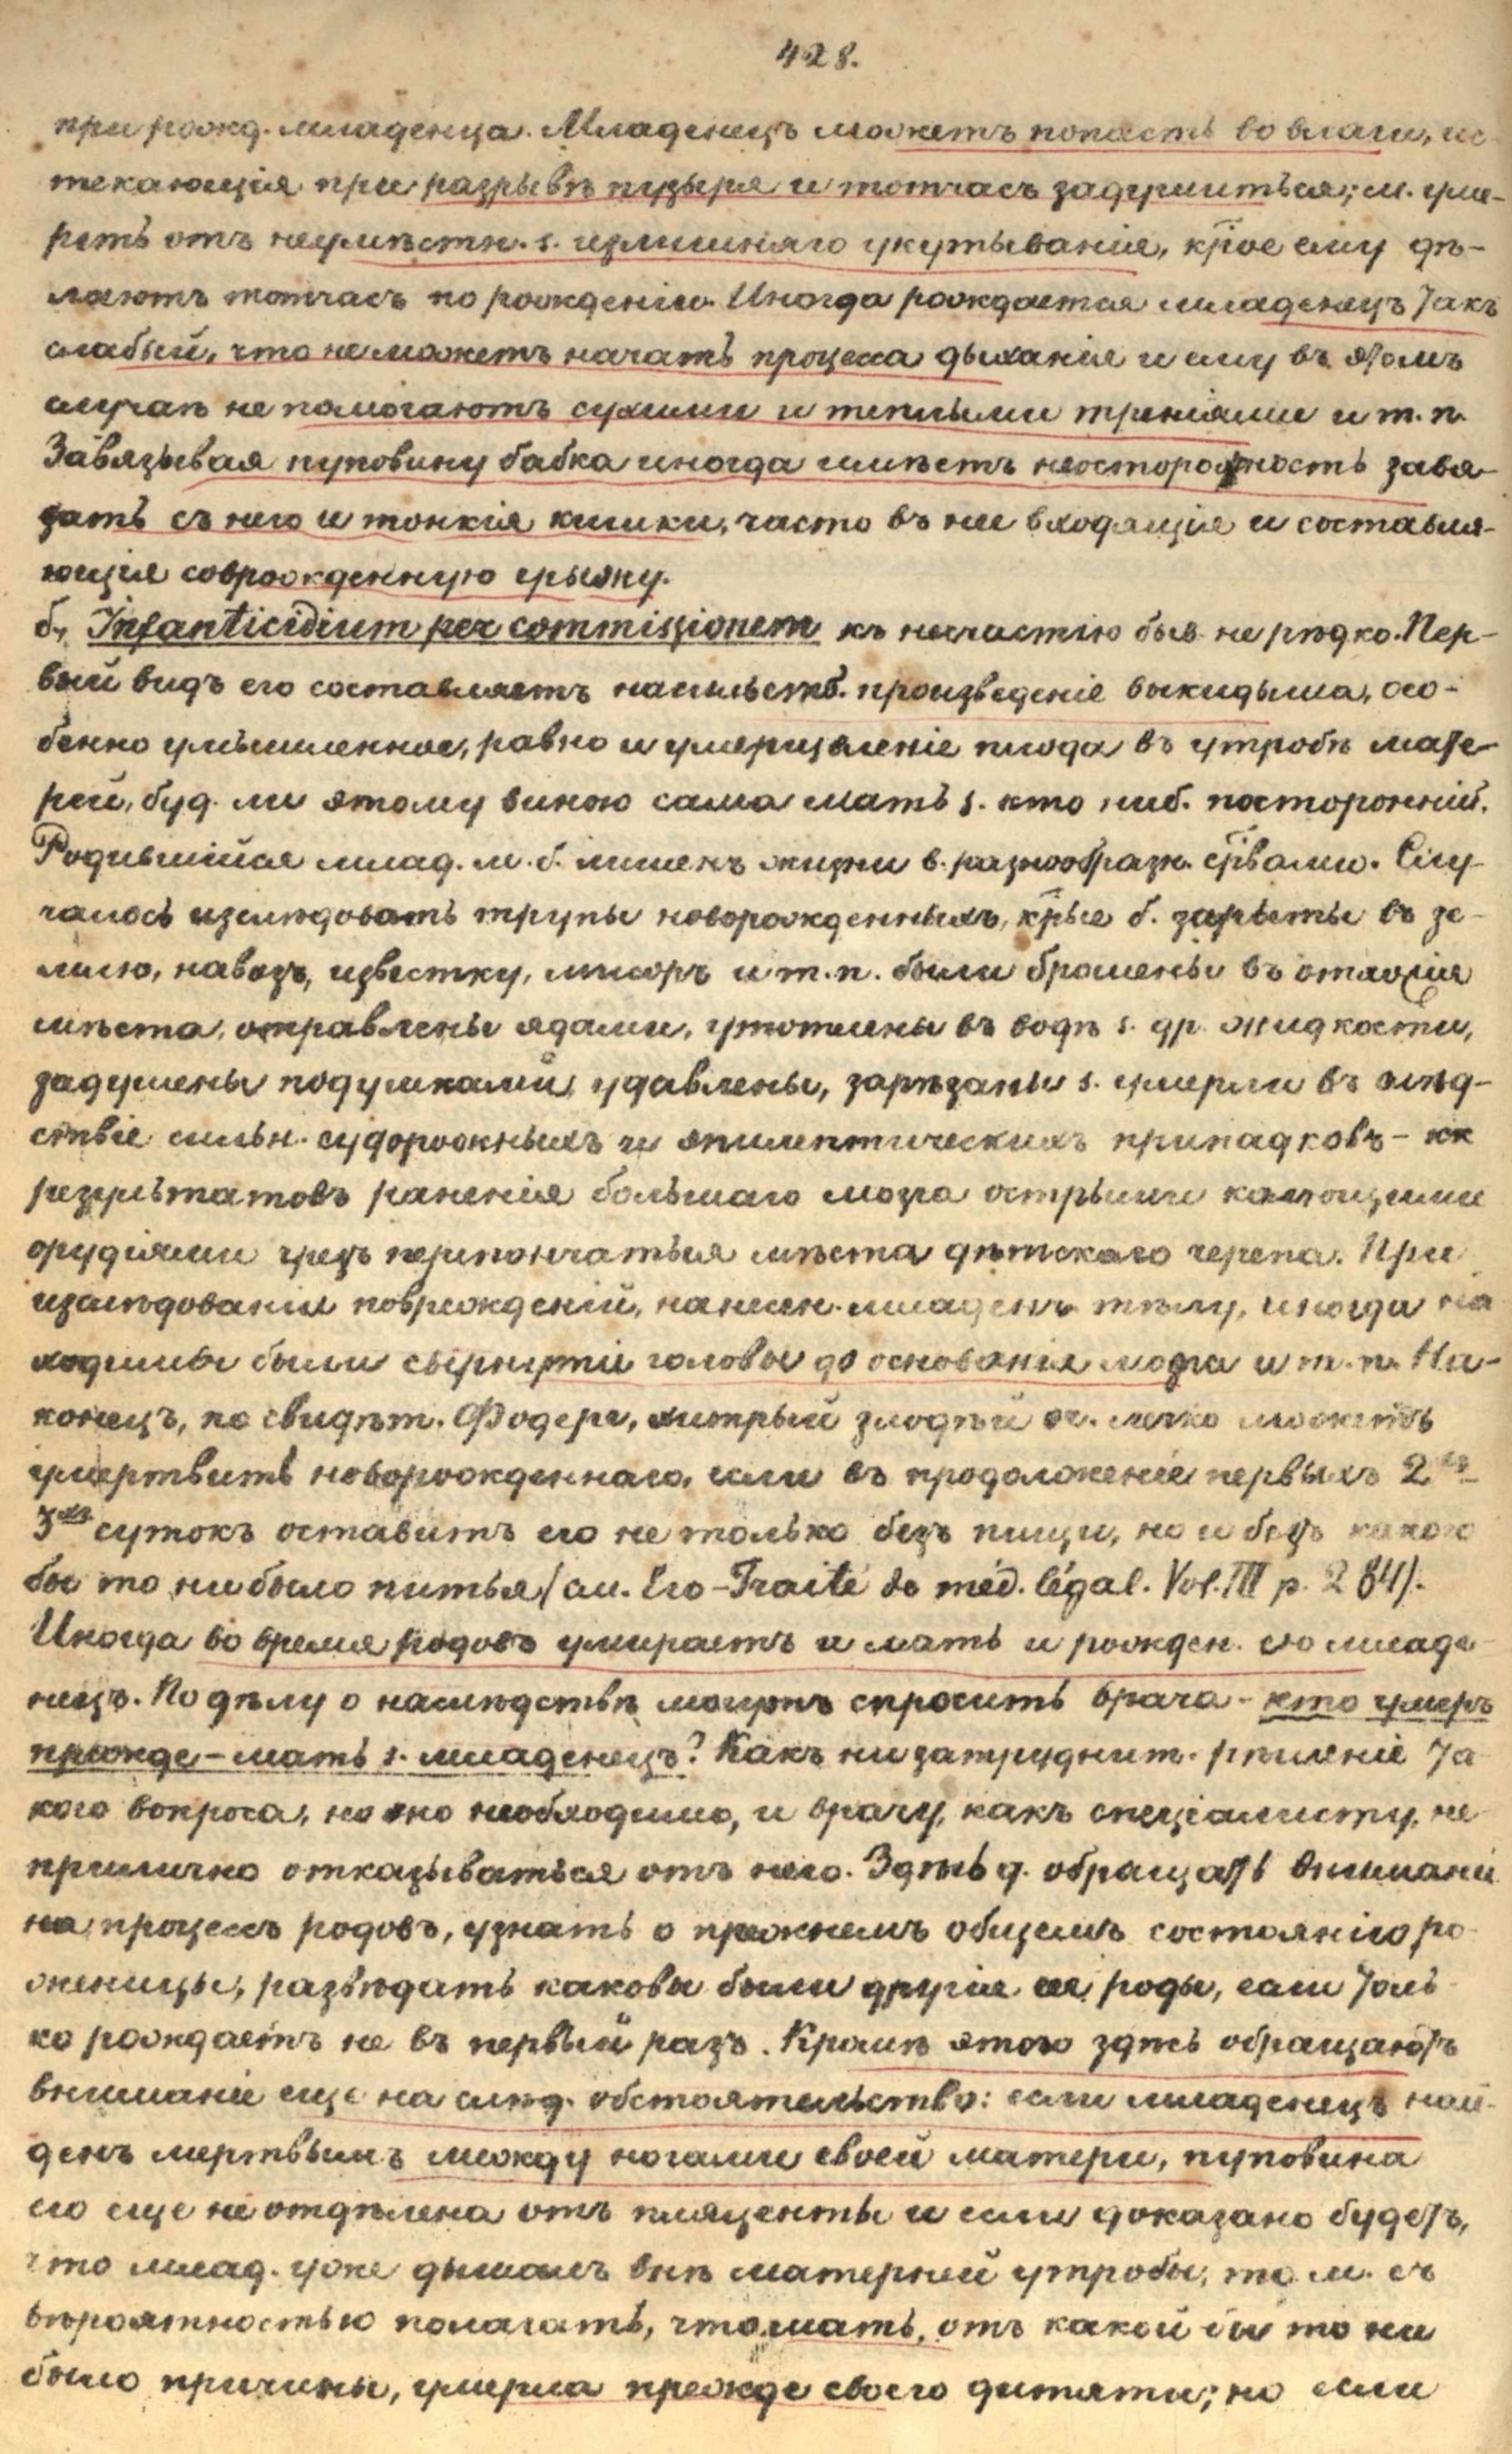 428.
при рожд. младенца. Младенецъ можетъ попасть во влаги, ис-
текающія при разрывѣ пузыря и тотчасъ задушиться; м. уме-
реть отъ неумѣстн. s. излишняго укутыванія, крое ему дѣ-
лаютъ тотчасъ по рожденію. Иногда рождается младенецъ такъ
слабый, что не можетъ начать процесса дыханія и ему въ этомъ
случаѣ не помогаютъ сухими и теплыми треніями и т. п.
Завязывая пуповину бабка иногда имѣетъ неосторожность завя-
зать съ нею и тонкія кишки, часто въ нее входящія и составля-
ющія соврожденную грыжу.
б, Infanticidium per commissionem къ несчастію быв. не рѣдко. Пер-
вый видъ его составляетъ насильств. произведеніе выкидыша, осо-
бенно умышленное, равно и умерщвленіе плода въ утробѣ мате-
рей, буд. ли этому виною сама мать s. кто ниб. посторонній.
Родившійся млад. м. б. лишенъ жизни в. разнообразн. срвами. Слу-
чалось изслѣдовать трупы новорожденныхъ, крые б. зарыты въ зе-
млю, навозъ, известку, мусоръ и т. п. были брошены въ отхожія
мѣста, отравлены ядами, утоплены въ водѣ s. др. жидкости,
задушены подушками, удавлены, зарѣзаны s. умерли въ слѣд-
ствіе сильн. судорожныхъ и эпилептическихъ припадковъ - кк
результатовъ раненія большаго мозга острыми колющими
орудіями чрезъ перепончатыя мѣста дѣтскаго черепа. При
изслѣдованіи поврежденій, нанесен. младенч. тѣлу, иногда на-
ходимы были свернутіи головы до основанія мозга и т. п. На-
конецъ, по свидѣт. Фодере, хитрый злодѣй оч. легко можетъ
умертвить новорожденнаго, если въ продолженіе первыхъ 2хъ-
3хъ сутокъ оставитъ его не только безъ пищи, но и безъ какого
бы то ни было питья (см. Его - Traité de méd. légal. Vol. III p. 284).
Иногда во время родовъ умираетъ и мать и рожден. ею младе-
нецъ. По дѣлу о наслѣдствѣ могутъ спросить врача - кто умеръ
прежде - мать s. младенецъ? Какъ ни затруднит. рѣшеніе та-
кого вопроса, но оно необходимо, и врачу, какъ спеціалисту, не-
прилично отказываться отъ него. Здѣсь д. обращать вниманіе
на процессъ родовъ, узнать о прежнемъ общемъ состояніи ро-
женицы, развѣдать каковы были другіе ея роды, если толь-
ко рождаетъ не въ первый разъ. Кромѣ этого здѣсь обращаютъ
вниманіе еще на слѣд. обстоятельство: если младенецъ най-
денъ мертвымъ между ногами своей матери, пуповина
его еще не отдѣлена отъ пляценты и если доказано будетъ,
что млад. уже дышалъ внѣ матерней утробы, то м. съ
вѣроятностью полагать, что мать, отъ какой бы то ни
было причины, умерла прежде своего дитяти; но если